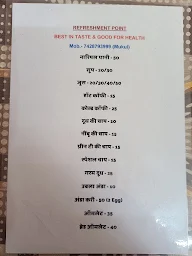 REFRESHMENT POINT
BEST IN TASTE & GOOD FOR HEALTH
Mob.- 7428793999 (Mukul)
नारियल पानी - 50
सूप - 20/30
जूस - 20/30/40/50
हॉट कॉफी - 25
कोल्ड कॉफी - 35
दूध की चाय - 10
नींबू की चाय - 15
ग्रीन टी की चाय - 15
स्पेशल चाय - 15
गरम दूध - 25
उबला अंडा - 10
अंडा करी - 50 (2 Egg)
ऑमलेट - 35
ब्रेड ऑमलेट - 40